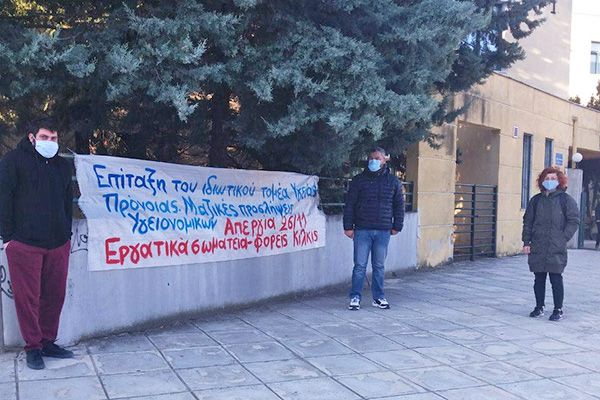 Επίταξη του ιδιωτικού τομέα Υγείας
Πρόνοιας. Μαζικές προσλήψεις
Υγειονομικών Απεργία 26/11
Εργατικά σωματεία-φορείς Κιλκίς